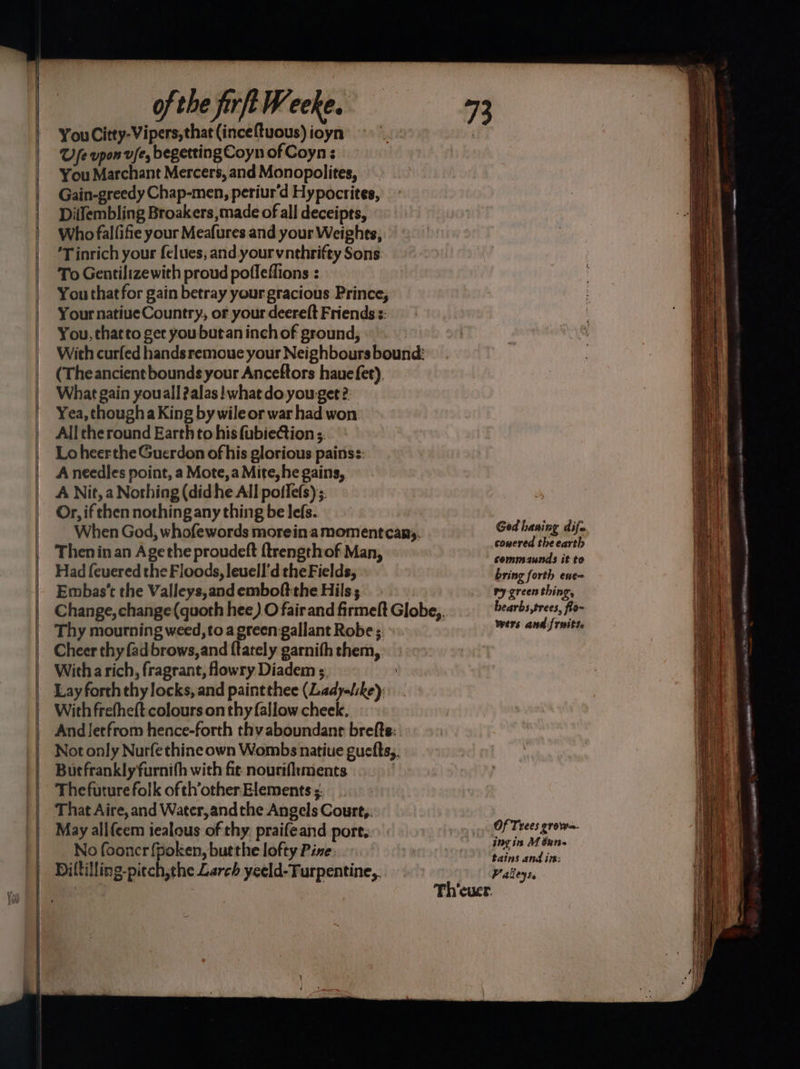 of the firſt Weeke. 73
You Citty-Vipers, that (inceſtuous) ioyn
Uſe vpon vſe, begetting Coyn of Coyn:
You Marchant Mercers, and Monopolites,
Gain-greedy Chap-men, periur'd Hypocrites,
Diſſembling Broakers, made of all deceipts,
Who falſifie your Meaſures and your Weights,
'Tinrich your ſelues, and your vnthrifty Sons
To Gentilize with proud poſſeſſions:
You that for gain betray your gracious Prince,
Your natiue Country, or your deereſt Friends:
You, that to get you but an inch of ground,
With curſed hands remoue your Neighbours bound:
(The ancient bounds your Anceſtors haue ſet)
What gain you all? alas! what do you get?
Yea, though a King by wile or war had won
All the round Earth to his ſubiection;
Lo heer the Guerdon of his glorious pains:
A needles point, a Mote, a Mite, he gains,
A Nit, a Nothing (did he All poſſeſs);
Or, if then nothing any thing be leſs.
When God, whoſe words more in a moment can,
Then in an Age the proudeſt ſtrength of Man,
Had ſeuered the Floods, leuell'd the Fields,
Embas't the Valleys, and emboſt the Hils;
Change, change (quoth hee) O fair and firmeſt Globe,
Thy mourning weed, to a green gallant Robe;
Cheer thy ſad brows, and ſtately garniſh them,
With a rich, fragrant, flowry Diadem;
Lay forth thy locks, and paint thee (Lady-like)
With freſheſt colours on thy ſallow cheek.
And let from hence-forth thy aboundant breſts
Not only Nurſe thine own Wombs natiue gueſts,
But frankly furniſh with fit nouriſhments
The future folk of th'other Elements;
That Aire, and Water, and the Angels Court,
May all ſeem iealous of thy praiſe and port.
No ſooner ſpoken, but the lofty Pine
Diſtilling-pitch, the Larch yeeld-Turpentine,
Th'euer
God hauing diſ-
couered the earth
commaunds it to
bring forth eue-
ry green thing,
hearbs, trees, flo-
wers and fruits.
Of Trees grow-
ing in Moun-
tains and in
Valleys.